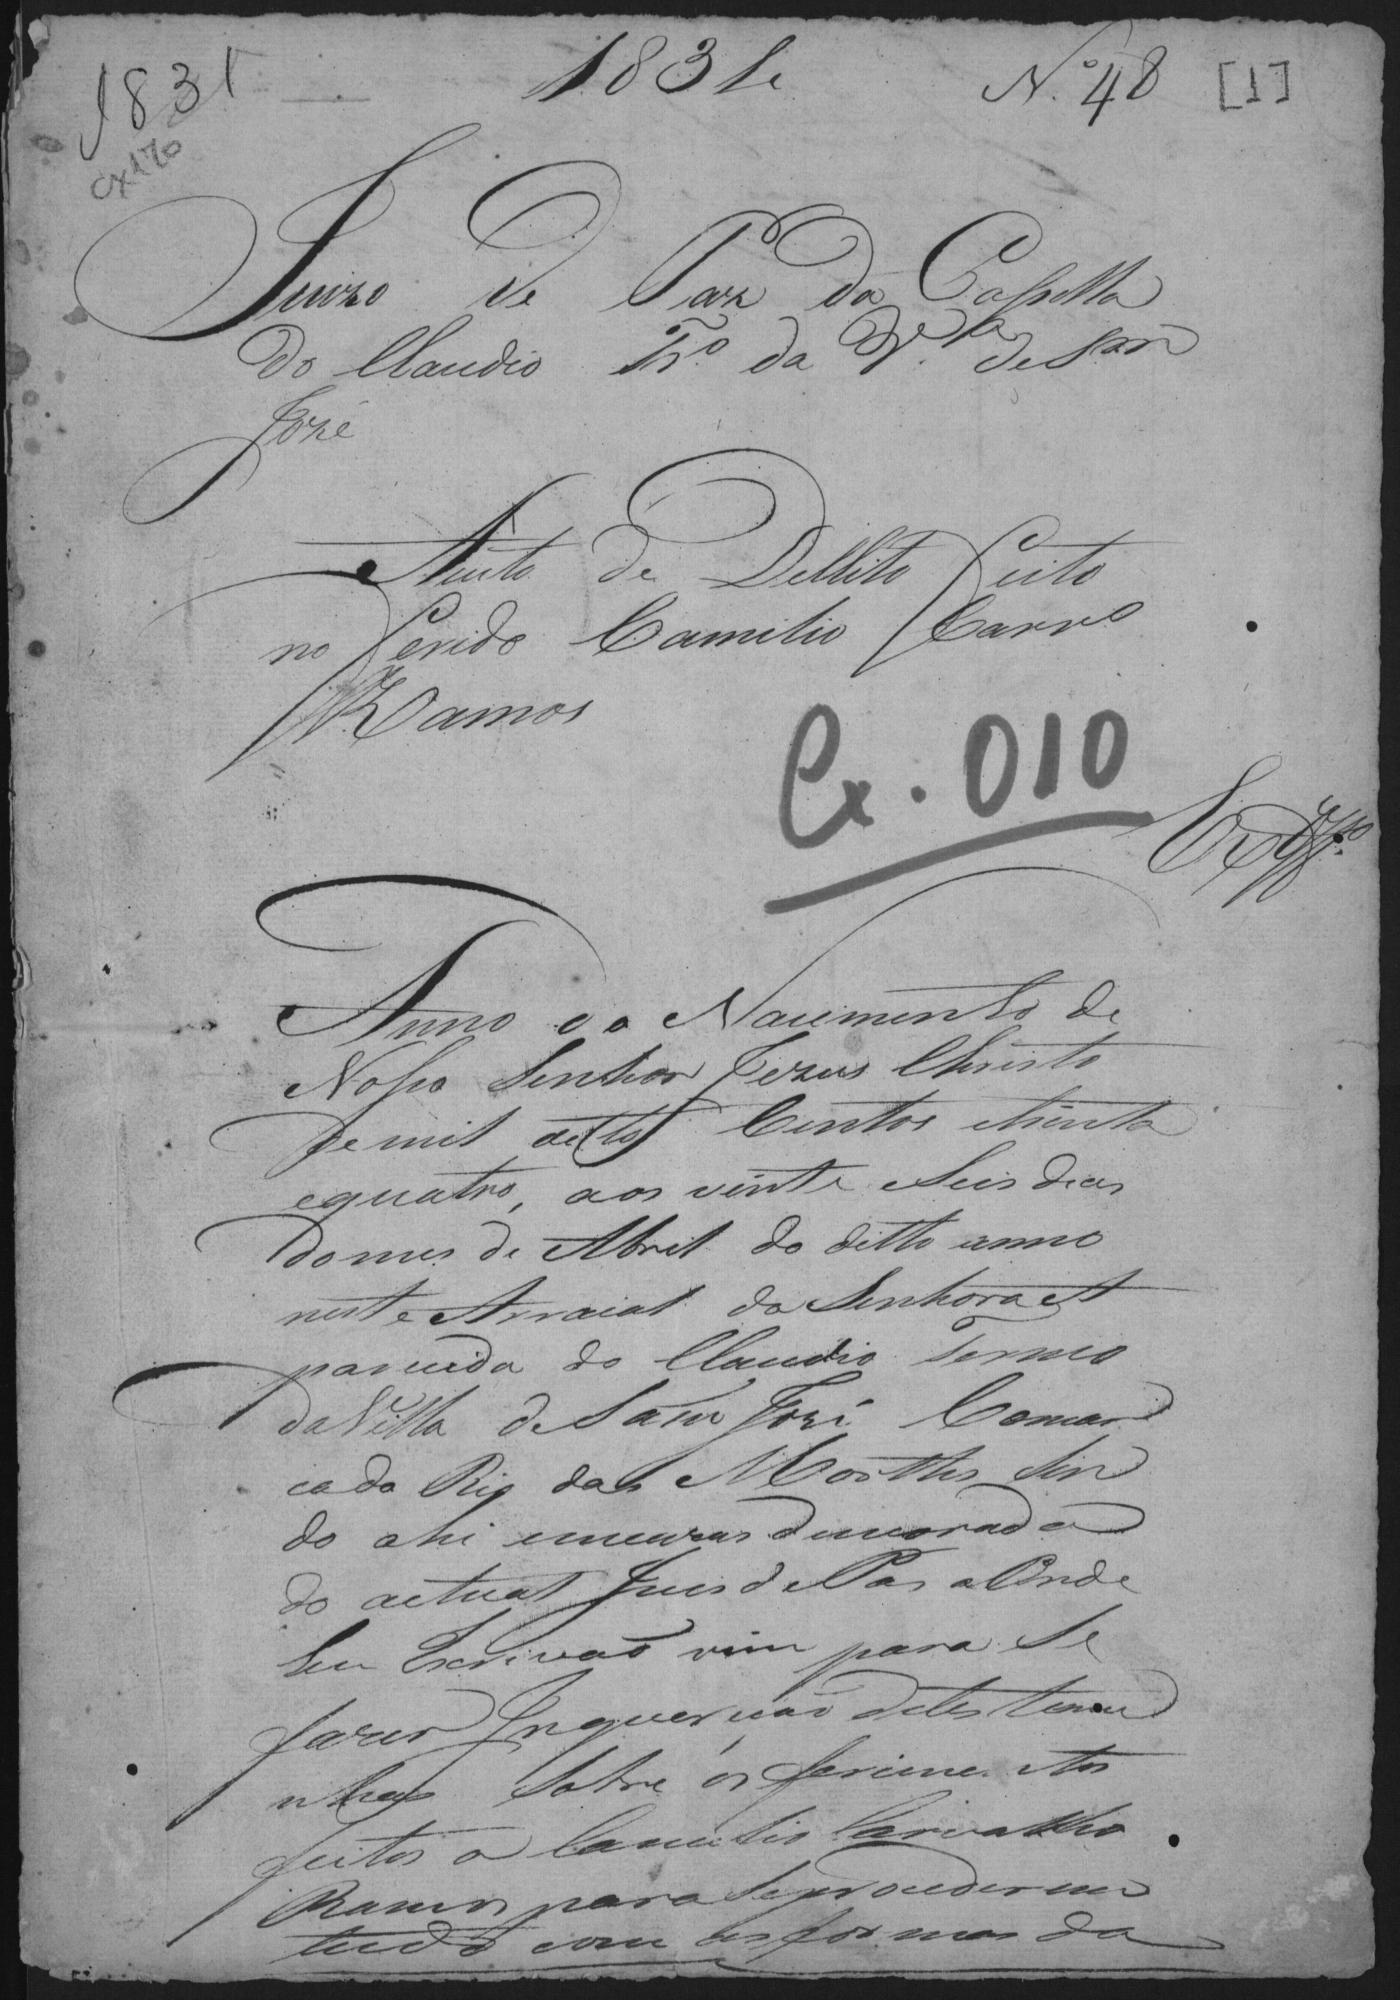 1831
183
Nº 48
[1]
cx 170
Juizo de Paz da Capella
do Claudio Trº da Vª de San
José
Auto de Dellito feito
no ferido Camilio Carvº
Ramos
Cx. 010
Anno do Nacimento de
Nosso Senhor Jezus Christo
de mil oito Centos etrinta
equatro, aos vinte Seis dias
domes de Abril do ditto anno
neste Arraial da Senhora A
parecida do Claudio Termo
da Villa de Sam José Comar
ca do Rio das Mortes Sen
do ahi emcazas demorada
do actual Juis de Pas a Onde
Eu Escrivaõ vim para Se
fazer Inquiriçaõ detestemu
nhas Sobre os ferimentos
feitos a Camilio Carvalho
Ramos para Seproceder em
tudo com as formas da